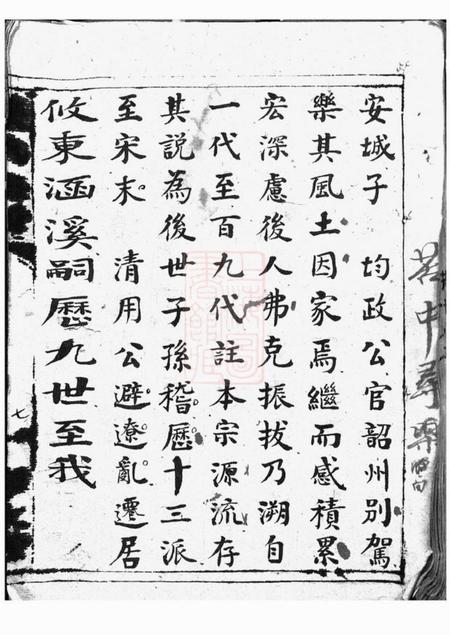 安城子　均政公官韶州别駕
樂其風土因家焉繼而感積累
宏深慮後人弗克振拔乃溯自
一代至百九代註本宗源流存
其説為後世子孫稽歷十三派
至宋末。　清用公避遼亂遷居
攸東涵溪嗣歷九世至我
七
苦中尋樂